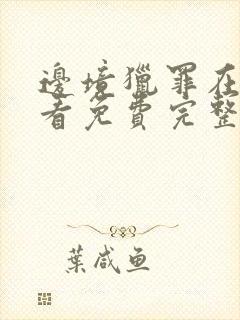 邊境獵罪在
看免費完整
葉咸魚